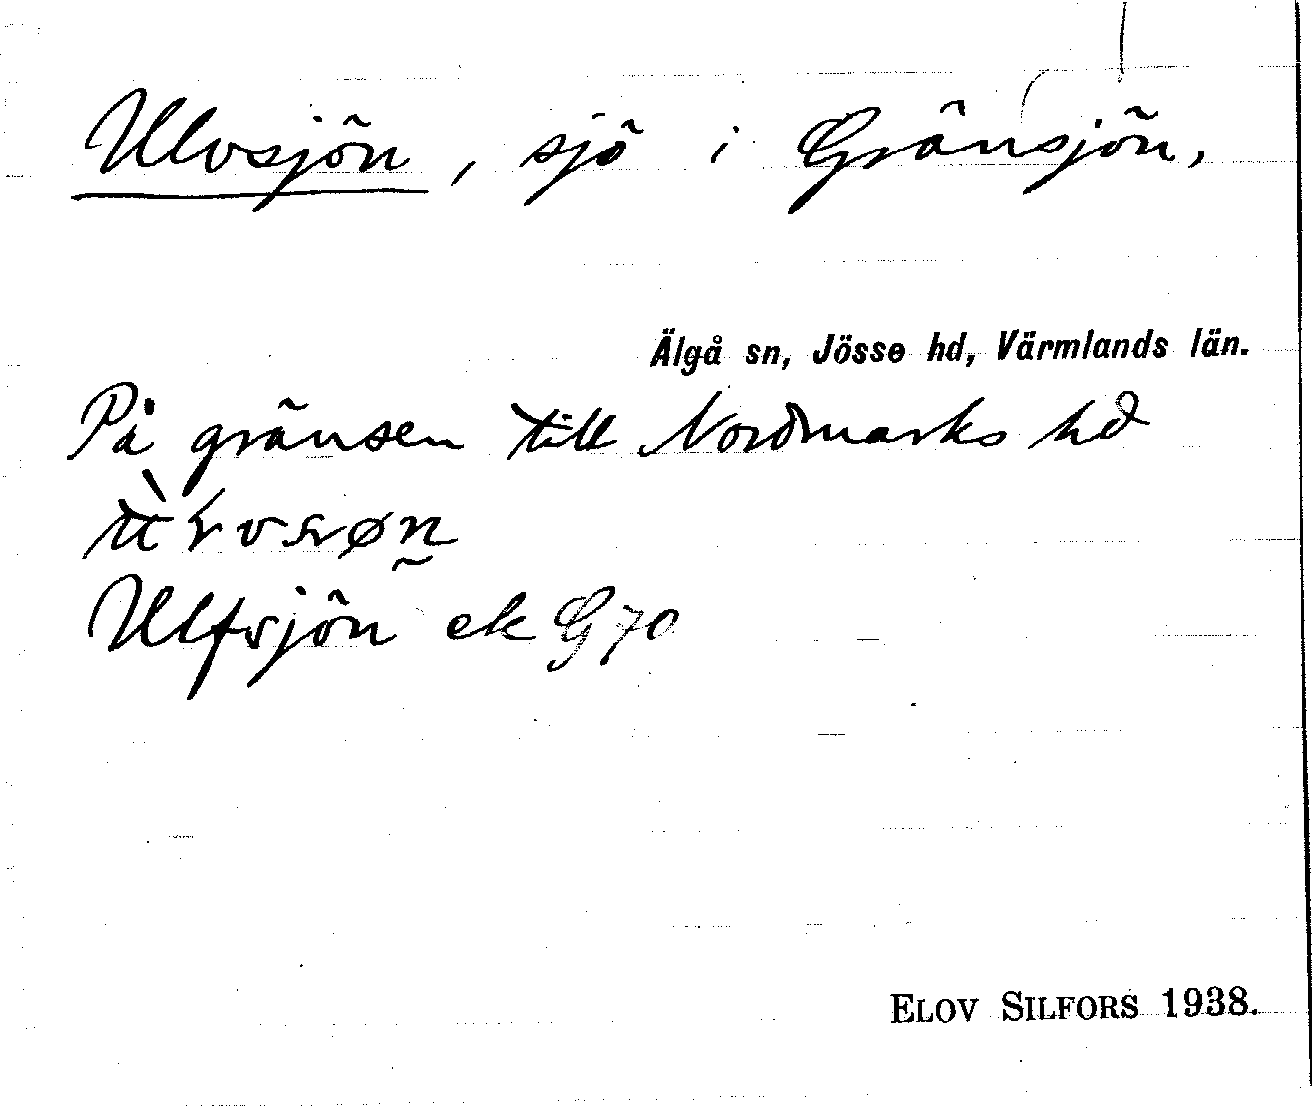 Ulvsjön, sjö i Gränsjön,
Älgå sn, Jösse hd, Värmlands län.
På gränsen till Nordmarks hd
Ulfsjön ek G70
ELOV SILFORS 1938.